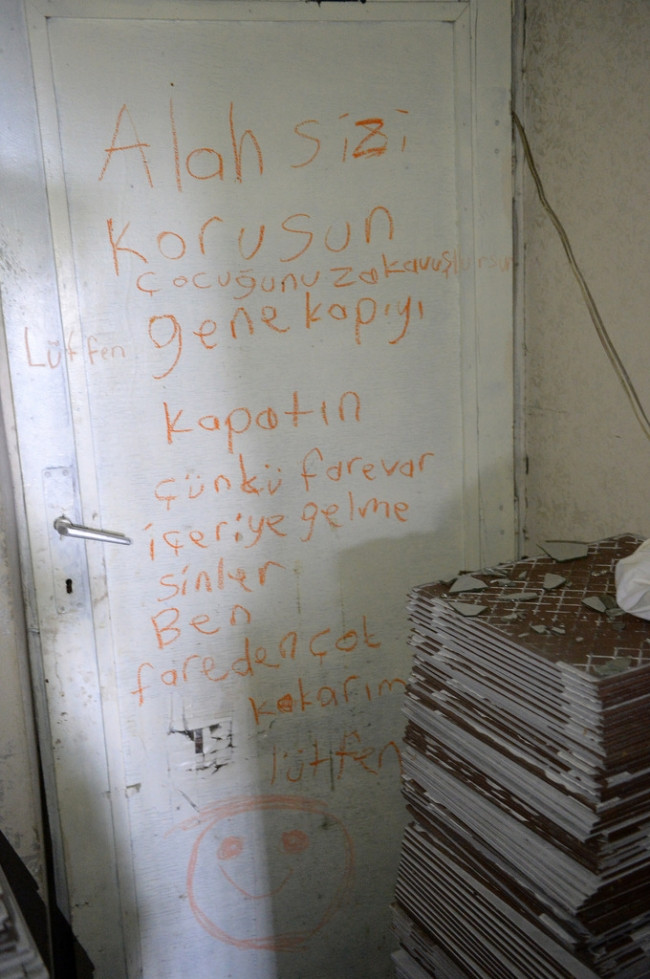 Alah sizi
korusun
çocuğunuza kavuştursun
Lütfen gene kapıyı
kapatın
çünkü farevar
içeriye gelme
sinler
Ben
fareden çok
kokarım
lütfen